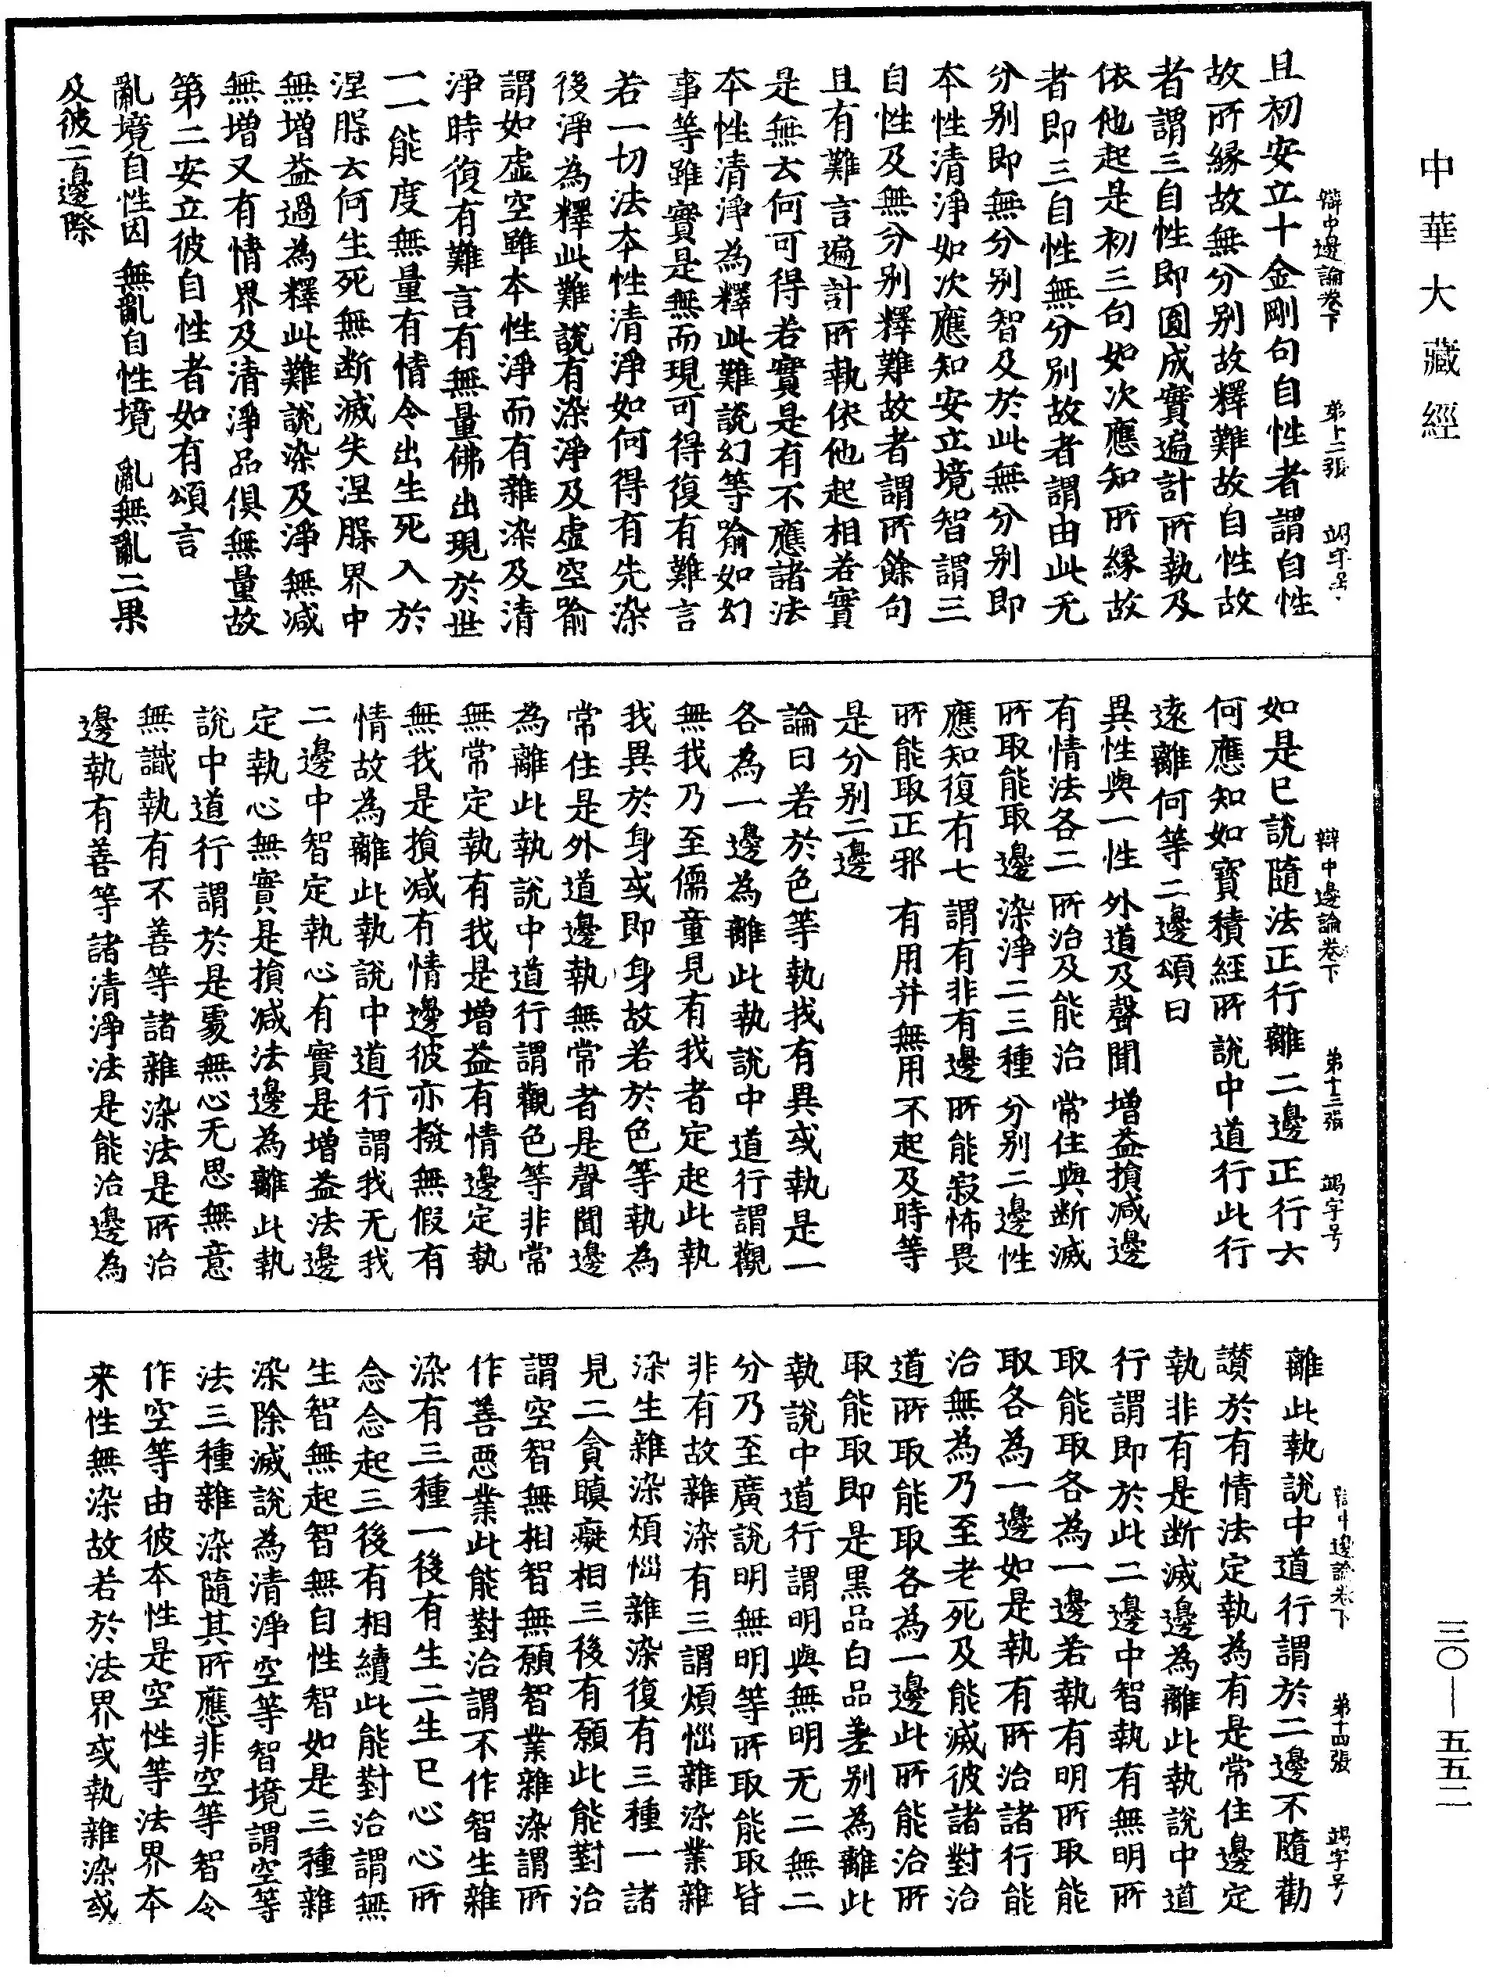 中華大藏經
辯中邊論卷下 第十二張 竭字号
且初安立十金剛句自性者謂自性
故所緣故無分別故釋難故自性故
者謂三自性即圓成實遍計所執及
依他起是初三句如次應知所緣故
者即三自性無分別故者謂由此无
分別即無分別智及於此無分別即
本性清淨如次應知安立境智謂三
自性及無分別釋難故者謂所餘句
且有難言遍計所執依他起相若實
是無云何可得若實是有不應諸法
本性清淨為釋此難說幻等喻如幻
事等雖實是無而現可得復有難言
若一切法本性清淨如何得有先染
後淨為釋此難說有染淨及虛空喻
謂如虛空雖本性淨而有雜染及清
淨時復有難言有無量佛出現於世
一一能度無量有情令出生死入於
涅槃云何生死無斷滅失涅槃界中
無增益過為釋此難說染及淨無減
無增又有情界及清淨品俱無量故
第二安立彼自性者如有頌言
亂境自性因 無亂自性境 亂無亂二果
及彼二邊際
辯中邊論卷下 第十三張 竭字号
如是已說隨法正行離二邊正行六
何應知如寶積經所說中道行此行
遠離何等二邊頌曰
異性與一性 外道及聲聞 增益損減邊
有情法各二 所治及能治 常住與斷滅
所取能取邊 染淨二三種 分別二邊性
應知復有七 謂有非有邊 所能寂怖畏
所能取正邪 有用并無用 不起及時等
是分別二邊
論曰若於色等執我有異或執是一
各為一邊為離此執說中道行謂觀
無我乃至儒童見有我者定起此執
我異於身或即身故若於色等執為
常住是外道邊執無常者是聲聞邊
為離此執說中道行謂觀色等非常
無常定執有我是增益有情邊定執
無我是損減有情邊彼亦撥無假有
情故為離此執說中道行謂我无我
二邊中智定執心有實是增益法邊
定執心無實是損減法邊為離此執
說中道行謂於是處無心无思無意
無識執有不善等諸雜染法是所治
邊執有善等諸清淨法是能治邊為
辯中邊論卷下 第十四張 竭字号
離此執說中道行謂於二邊不隨勸
讚於有情法定執為有是常住邊定
執非有是斷滅邊為離此執說中道
行謂即於此二邊中智執有無明所
取能取各為一邊若執有明所取能
取各為一邊如是執有所治諸行能
治無為乃至老死及能滅彼諸對治
道所取能取各為一邊此所能治所
取能取即是黑品白品差別為離此
執說中道行謂明與無明无二無二
分乃至廣說明無明等所取能取皆
非有故雜染有三謂煩惱雜染業雜
染生雜染煩惱雜染復有三種一諸
見二貪瞋癡相三後有願此能對治
謂空智無相智無願智業雜染謂所
作善惡業此能對治謂不作智生雜
染有三種一後有生二生已心心所
念念起三後有相續此能對治謂無
生智無起智無自性智如是三種雜
染除滅說為清淨空等智境謂空等
法三種雜染隨其所應非空等智令
作空等由彼本性是空性等法界本
来性無染故若於法界或執雜染或
三〇—五五二